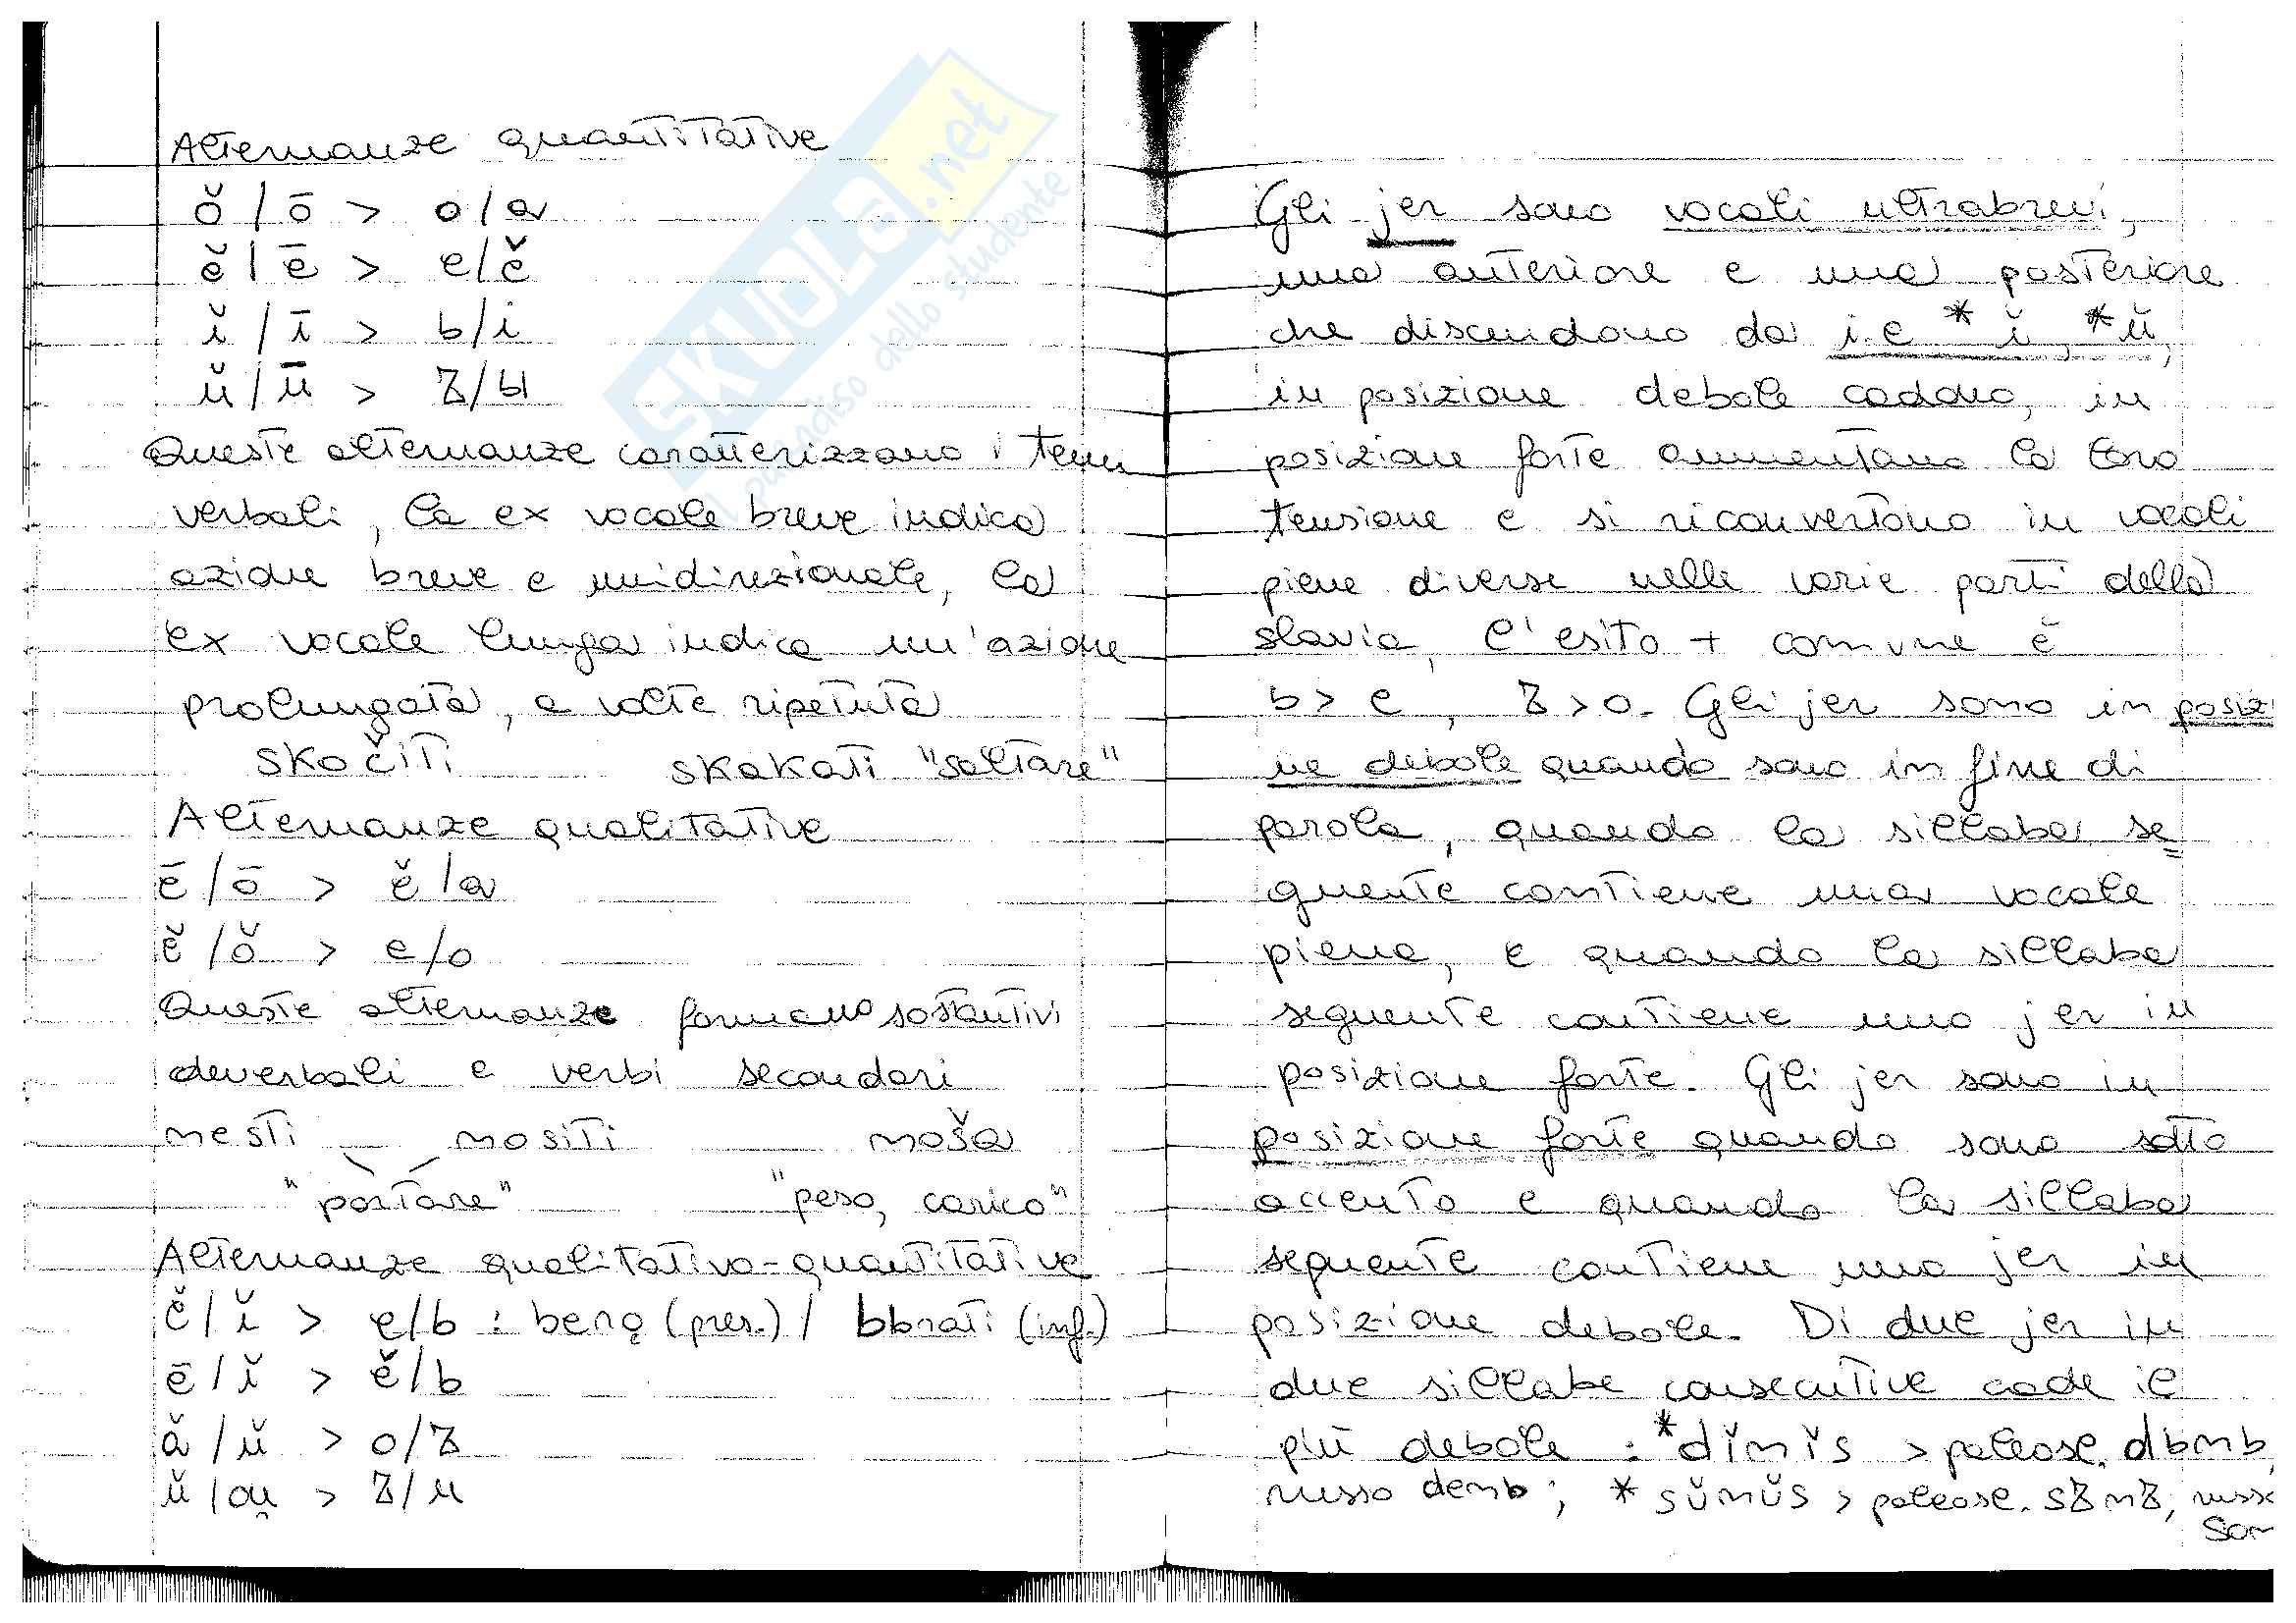 Alternanze quantitative
ŏ / ō > o/a
ĕ / ē > e/ě
ĭ / ī > ь/i
ŭ / ū > ъ/ы
Queste alternanze caratterizzano i temi
verbali, la ex vocale breve indica
azione breve e unidirezionale, la
ex vocale lunga indica un'azione
prolungata, a volte ripetuta
skočiti skakati "saltare"
Alternanze qualitative
ē / ō > ě / a
ĕ / ŏ > e/o
Queste alternanze formano sostantivi
deverbali e verbi secondari
nesti – nositi noša
"portare" "peso, carico"
Alternanze qualitativo-quantitative
ĕ / ĭ > e/ь : berǫ (pres.) / bьrati (inf.)
ē / ĭ > ě/ь
ă / ŭ > o/ъ
ŭ / au̯ > ъ/u
Gli jer sono vocali ultrabrevi,
una anteriore e una posteriore
che discendono da i.e *ĭ, *ŭ,
in posizione debole cadono, in
posizione forte aumentano la loro
tensione e si riconvertono in vocali
piene diverse nelle varie parti della
slavia, l'esito + comune è
ь > e, ъ > o. Gli jer sono in posizi
ne debole quando sono in fine di
parola, quando la sillaba se=
guente contiene una vocale
piena, e quando la sillaba
seguente contiene uno jer in
posizione forte. Gli jer sono in
posizione forte quando sono sotto
accento e quando la sillaba
seguente contiene uno jer in
posizione debole. Di due jer in
due sillabe consecutive cade il
più debole : *dĭnĭs > paleosl. dьnь,
russo denь ; *sŭnŭs > paleosl. sъnъ, russo
son
SKUOLA.net
il paradiso dello studente